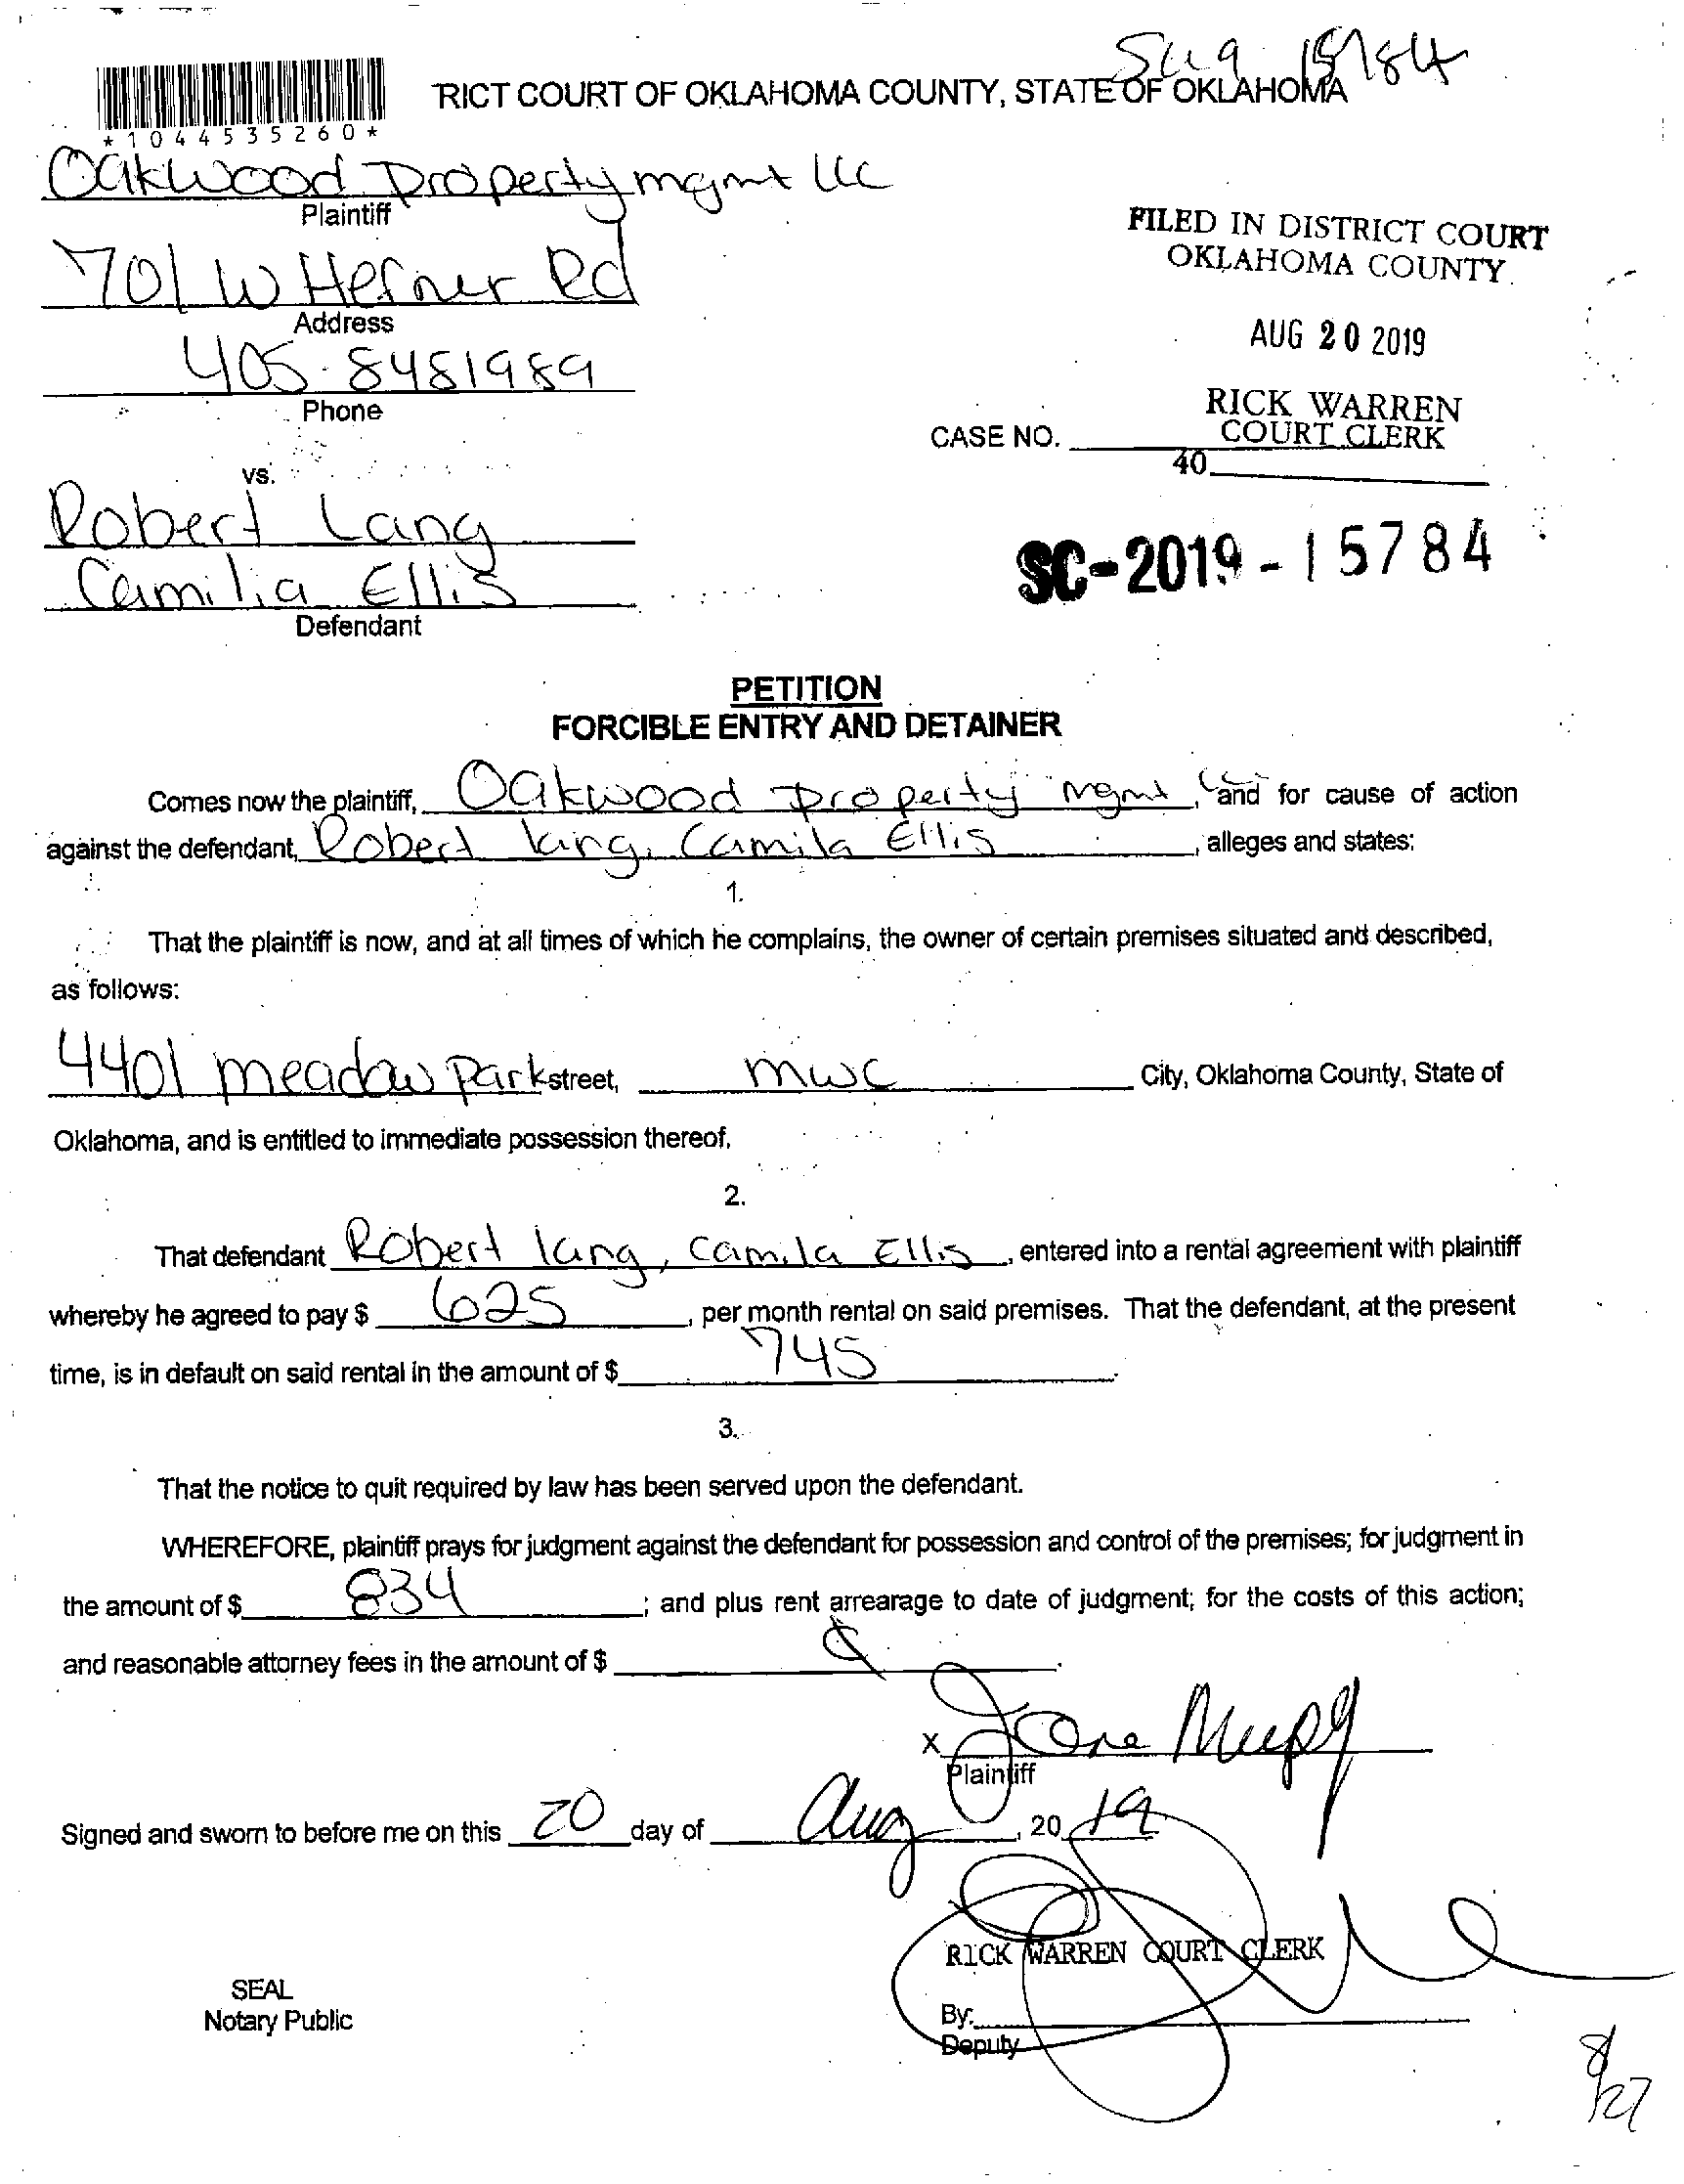 RICT COURT OF OKLAHOMA COUNTY, STATE OF OKLAHOMA
*1044535260*
Oakwood Property mgmt llc
Plaintiff
701 W Hefner Rd
Address
405-8481989
Phone
vs.
Robert Lang
Camilia Ellis
Defendant
FILED IN DISTRICT COURT
OKLAHOMA COUNTY
AUG 20 2019
RICK WARREN
COURT CLERK
CASE NO.
40
SC-2019-15784
PETITION
FORCIBLE ENTRY AND DETAINER
Comes now the plaintiff, Oakwood Property mgmt, and for cause of action
against the defendant, Robert lang, Camila Ellis, alleges and states:
1.
That the plaintiff is now, and at all times of which he complains, the owner of certain premises situated and described,
as follows:
4401 meadow park street, mwc City, Oklahoma County, State of
Oklahoma, and is entitled to immediate possession thereof.
2.
That defendant Robert lang, Camila Ellis, entered into a rental agreement with plaintiff
whereby he agreed to pay $ 625, per month rental on said premises. That the defendant, at the present
time, is in default on said rental in the amount of $ 745.
3.
That the notice to quit required by law has been served upon the defendant.
WHEREFORE, plaintiff prays for judgment against the defendant for possession and control of the premises; for judgment in
the amount of $ 834; and plus rent arrearage to date of judgment; for the costs of this action;
and reasonable attorney fees in the amount of $
X
Plaintiff
Signed and sworn to before me on this 20 day of Aug, 2019
RICK WARREN COURT CLERK
SEAL
Notary Public
By:
Deputy
8/27